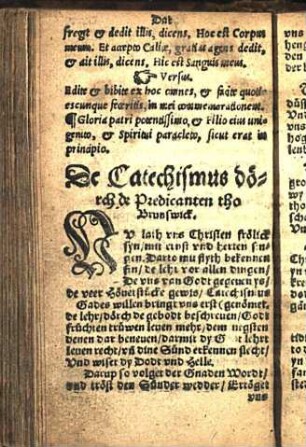 Dat
fregt & dedit illis, dicens, Hoc est Corpus
meum. Et accepto Calice, gratias agens dedit,
& ait illis, dicens, Hic est Sanguis meus.
☞ Versus.
Edite & bibite ex hoc omnes, & facite quoti-
escunque in mei commemorationem.
¶ Gloria patri potentissimo, & Filio eius uni-
genito, & Spiritui paracleto, sicut erat in
principio.
De Catechismus dö-
rch de Predicanten tho
Brunswick.
NU lath vns Christen frölick
syn, mit ernst vnd herten sin-
gen. Darto mu styth bekennen
fin, de lehr vor allen dingen/
De vns van Godt gegeuen ys/
de veer Höuetstücke gewis/ Catechismus
Gades willen bringt vns erst
de lehr/ dörch de gebodt beschreuen/ Godt
früchten trüwen leuen mehr/ dem negsten
denen dar beneuen/ darmit dy lehr
leuen recht/ vn dine Sünde erkennen slecht/
Vnd wiset dy Dodt vnd Helle.
Darup so volget der Gnaden Wordt/
vnd tröst den Sünder wedder/ Ertöget
vns